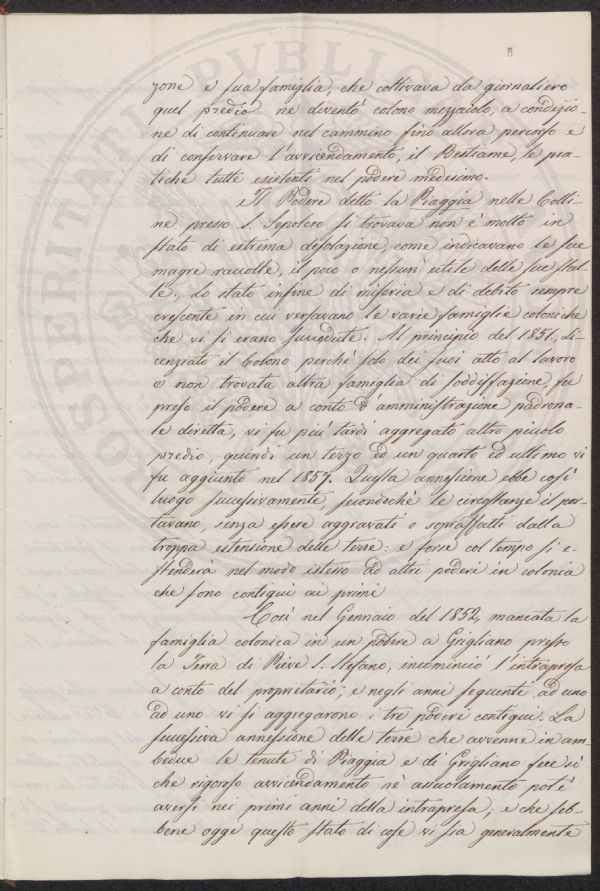 5
zone e sua famiglia, che coltivava da giornaliero
quel predio ne diventò colono mezzaiolo, a condizio-
ne di continuare nel cammino fino allora percorso e
di conservare l'avvicendamento, il Bestiame, le pra-
tiche tutte esistenti nel podere medesimo.
Il Podere detto la Piaggia nelle Colli-
ne presso S. Sepolcro si trovava non è molto in
stato di estrema desolazione come indicavano le sue
magre raccolte, il poco o nessun utile delle sue stal-
le, lo stato infine di miseria e di debito sempre
crescente in cui versavano le varie famiglie coloniche
che vi si erano succedute. Al principio del 1851, li-
cenziato il Colono perchè solo dei suoi atto al lavoro
e non trovata altra famiglia di soddisfazione fu
preso il podere a conto d'amministrazione padrona-
le diretta, vi fu più tardi aggregato altro piccolo
predio, quindi un terzo ed un quarto ed ultimo vi
fu aggiunto nel 1857. Questa annessione ebbe così
luogo successivamente, secondochè le circostanze il por-
tavano, senza essere aggravati o sopraffatti dalla
troppa estensione delle terre: e forse col tempo si e-
stenderà nel modo istesso ad altri poderi in colonia
che sono contigui ai primi
Così nel Gennaio del 1852, mancata la
famiglia colonica in un podere a Grigliano presso
la Terra di Pieve S. Stefano, incominciò l'intrapresa
a conto del proprietario, e negli anni seguenti ad uno
ad uno vi si aggregarono i tre poderi contigui. La
successiva annessione delle terre che avvenne in am-
bedue le tenute di Piaggia e di Grigliano fece sì
che rigoroso avvicendamento nè assuolamento potè
aversi nei primi anni della intrapresa, e che seb-
bene oggi questo stato di cose vi sia generalmente
PROSPERITATI PVBLICAE